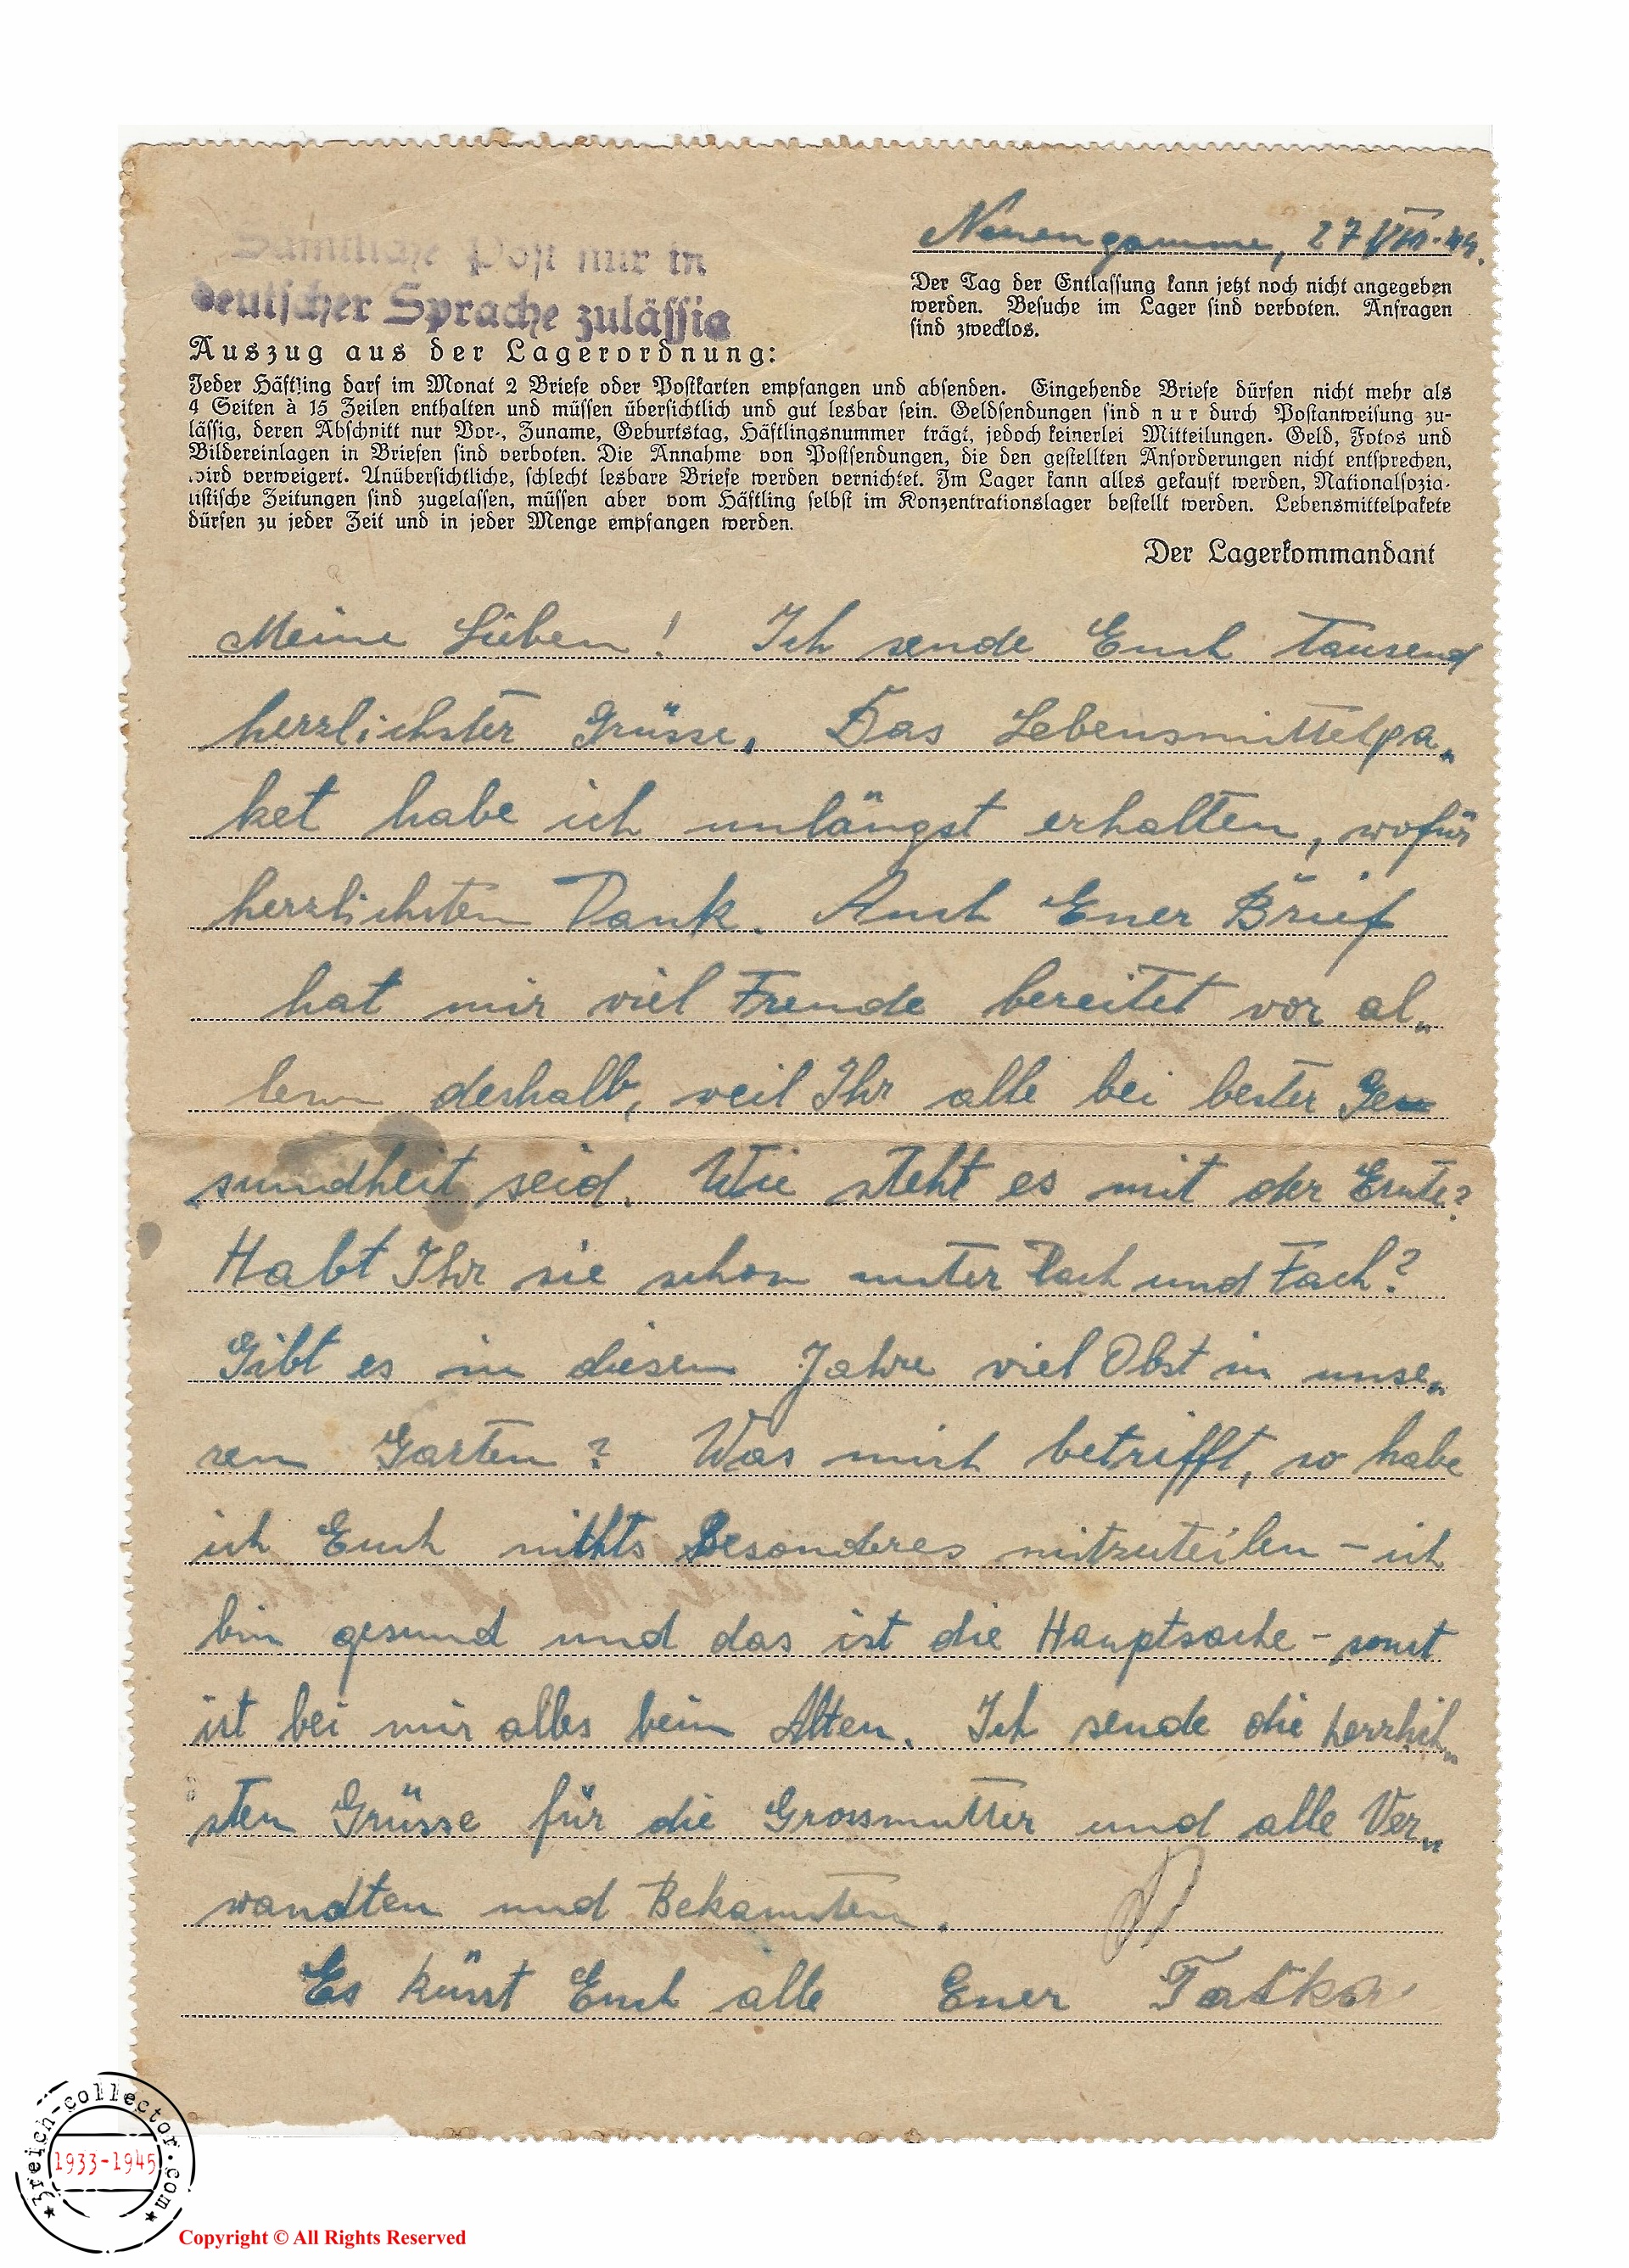 Neuengamme, 27 VIII. 44.
Sämtliche Post nur in
deutscher Sprache zulässig
Der Tag der Entlassung kann jetzt noch nicht angegeben
werden. Besuche im Lager sind verboten. Anfragen
sind zwecklos.
Auszug aus der Lagerordnung:
Jeder Häftling darf im Monat 2 Briefe oder Postkarten empfangen und absenden. Eingehende Briefe dürfen nicht mehr als
4 Seiten à 15 Zeilen enthalten und müssen übersichtlich und gut lesbar sein. Geldsendungen sind nur durch Postanweisung zu-
lässig, deren Abschnitt nur Vor-, Zuname, Geburtstag, Häftlingsnummer trägt, jedoch keinerlei Mitteilungen. Geld, Fotos und
Bildereinlagen in Briefen sind verboten. Die Annahme von Postsendungen, die den gestellten Anforderungen nicht entsprechen,
wird verweigert. Unübersichtliche, schlecht lesbare Briefe werden vernichtet. Im Lager kann alles gekauft werden, Nationalsozia-
listische Zeitungen sind zugelassen, müssen aber vom Häftling selbst im Konzentrationslager bestellt werden. Lebensmittelpakete
dürfen zu jeder Zeit und in jeder Menge empfangen werden.
Der Lagerkommandant
Meine Lieben! Ich sende Euch tausend
herzlichster Grüsse. Das Lebensmittelpa„
ket habe ich unlängst erhalten, wofür
herzlichsten Dank. Auch Euer Brief
hat mir viel Freude bereitet vor al„
lem deshalb, weil Ihr alle bei bester Ge
sundheit seid. Wie steht es mit der Ernte?
Habt Ihr sie schon unter Dach und Fach?
Gibt es in diesem Jahre viel Obst in unse„
rem Garten? Was mich betrifft, so habe
ich Euch nichts Besonderes mitzuteilen – ich
bin gesund und das ist die Hauptsache – sonst
ist bei mir alles beim Alten. Ich sende die herzlich„
sten Grüsse für die Grossmutter und alle Ver„
wandten und Bekannten.
Es küsst Euch alle Euer
3reich-collector.com
1933-1945
Copyright © All Rights Reserved